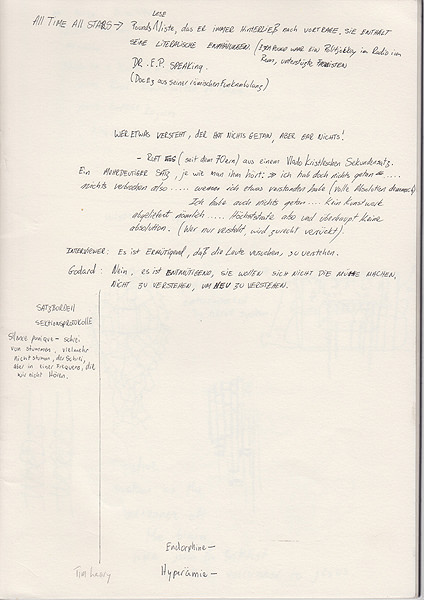 LOSE
All Time All Stars → Pounds Liste, das ER IMMER HINTERLIEß nach VORTRÄGE, SIE ENTHÄLT
SEINE LITERARISCHE EMPFEHLUNGEN. (EZRA POUND WAR EIN Politjockey im Radio in
Rom, unterstützte
DR. E.P. SPEAKING.
(Doc Ez aus seiner römischen Funkambulanz)
WER ETWAS VERSTEHT, DER HAT NICHTS GETAN, ABER GAR NICHTS!
- Ruft (seit dem 70ern) aus einem Vlado Kristlschen Sekundensatz.
Ein MEHRDEUTIGER SATZ, je wie man ihn hört: » ich hab doch nichts getan .....
nichts verbrochen also ..... wenn ich etwas verstanden habe (volle Absolution demnach)
Ich habe auch nichts getan .... Kein Kunstwerk
abgeliefert nämlich .... Höchststrafe also und überhaupt keine
absolution. (Wer nur versteht wird zurecht verrückt).
INTERVIEWER: Es ist ERMUTIGEND, daß die Leute versuchen, zu verstehen.
Godard: Nein, es ist ENTMUTIGEND, SIE WOLLEN SICH NICHT DIE MÜHE MACHEN,
NICHT ZU VERSTEHEN, UM NEU ZU VERSTEHEN.
SATZBORDELL
SEKTIONSPROTOKOLLE
Silence panique - schrei
von stummen, vielmehr
nicht stumm, der Schrei,
aber in einer Frequenz, die
wir nicht hören.
Endorphine -
Tim Leary
Hyperämie -